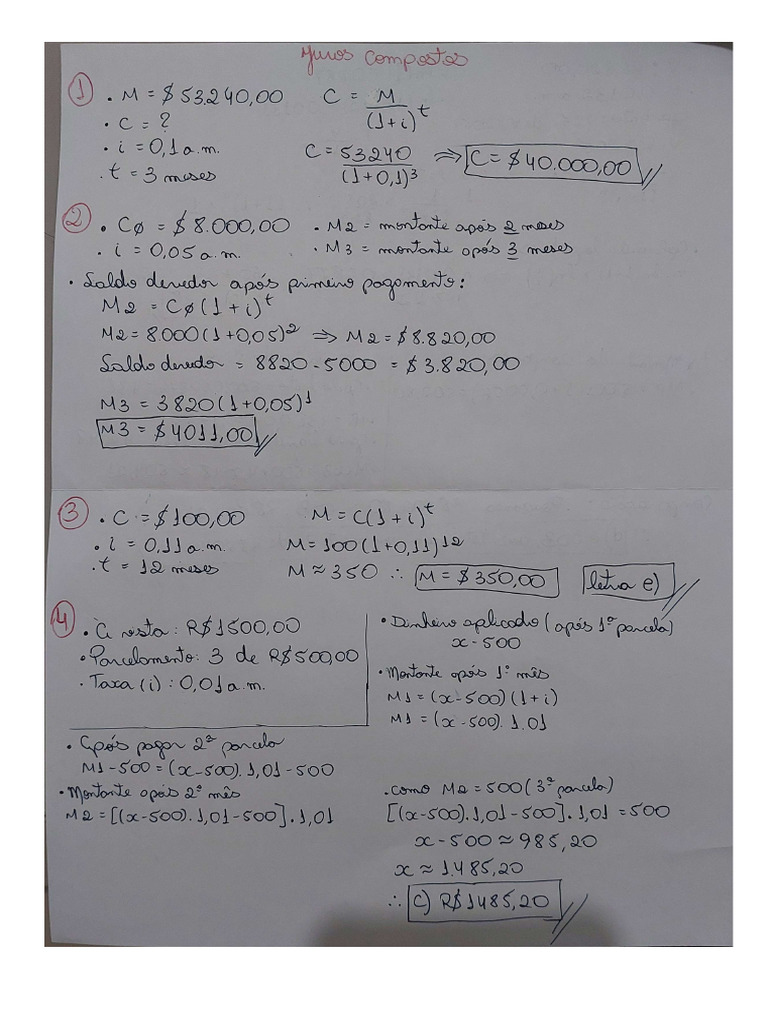 Juros Compostos
1 • M = $ 53.240,00
• C = ?
• i = 0,1 a.m.
• t = 3 meses
C = M/(1+i)^t
C = 53240/(1+0,1)^3 ⇒ C = $ 40.000,00
2 • C0 = $ 8.000,00
• i = 0,05 a.m.
• M2 = montante após 2 meses
• M3 = montante após 3 meses
• Saldo devedor após primeiro pagamento:
M2 = C0(1+i)^t
M2 = 8.000(1+0,05)^2 ⇒ M2 = $ 8.820,00
Saldo devedor = 8820 - 5000 = $ 3.820,00
M3 = 3820(1+0,05)^1
M3 = $ 4011,00
3 • C = $ 100,00
• i = 0,11 a.m.
• t = 12 meses
M = C(1+i)^t
M = 100(1+0,11)^12
M ≈ 350 ∴ M = $ 350,00 letra e)
4 • À vista: R$ 1500,00
• Parcelamento: 3 de R$ 500,00
• Taxa (i): 0,01 a.m.
• Dinheiro aplicado (após 1ª parcela)
x - 500
• Montante após 1º mês
M1 = (x-500)(1+i)
M1 = (x-500).1,01
• Após pagar 2ª parcela
M1-500 = (x-500).1,01-500
• Montante após 2º mês
M2 = [(x-500).1,01-500].1,01
• como M2 = 500 (3ª parcela)
[(x-500).1,01-500].1,01 = 500
x - 500 ≈ 985,20
x ≈ 1.485,20
∴ C) R$ 1485,20